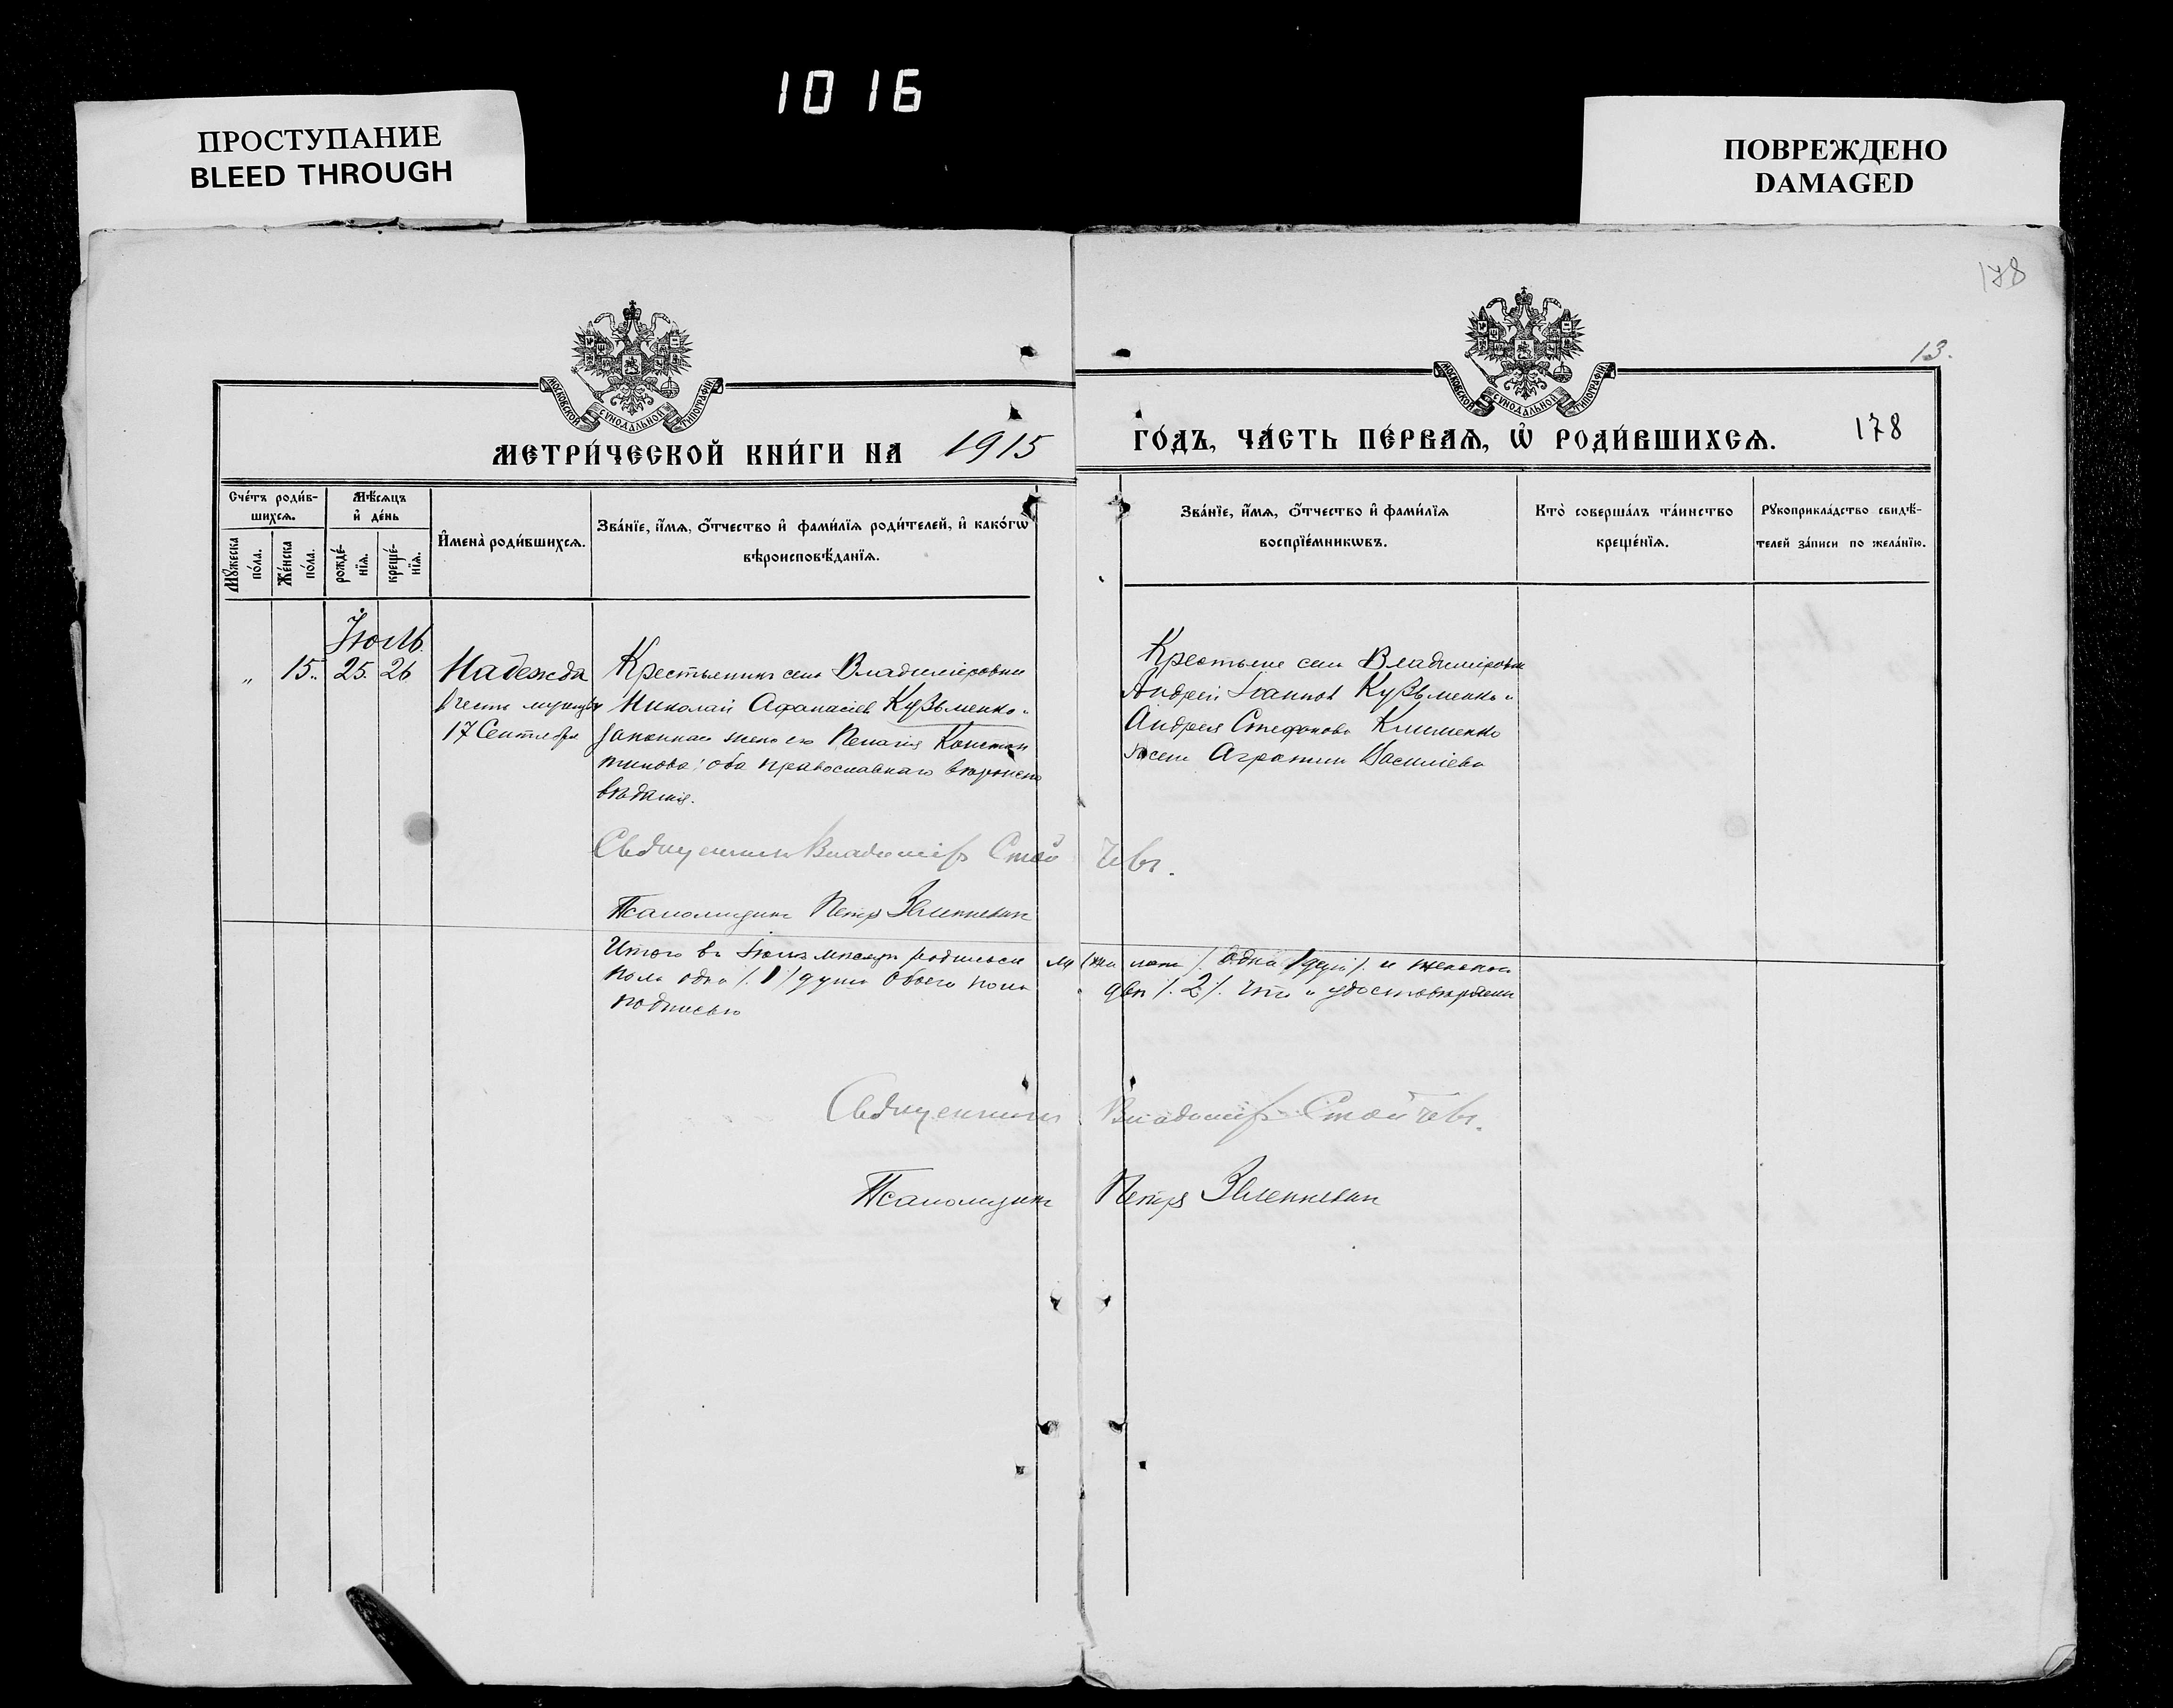 1016
ПРОСТУПАНИЕ
BLEED THROUGH
ПОВРЕЖДЕНО
DAMAGED
178
13.
МОСКОВСКОЙ СУНОДАЛЬНОЙ ТИПОГРАФІИ
МОСКОВСКОЙ СУНОДАЛЬНОЙ ТИПОГРАФІИ
МЕТРИ́ЧЕСКОЙ КНИ́ГИ НА 1915
ГО́ДЪ, ЧА́СТЬ ПЕ́РВАѦ, Ѡ҆ РОДИ́ВШИХСѦ. 178
Сче́тъ роди́в-
шихсѧ.
Мꙋ́жеска по́ла.
Же́нска по́ла.
Мѣ́сѧцъ
и҆ де́нь
рожде́-
нїѧ.
креще́-
нїѧ.
И҆мена̀ роди́вшихсѧ.
Зва́нїе, и҆́мѧ, ѻ҆́тчество и҆ фами́лїѧ роди́телей, и҆ како́гѡ
вѣроисповѣ́данїѧ.
Зва́нїе, и҆́мѧ, ѻ҆́тчество и҆ фами́лїѧ
воспрїе́мникѡвъ.
Кто̀ соверша́лъ та́инство
креще́нїѧ.
Рꙋкоприкла́дство свидѣ́-
телей за́писи по жела́нїю.
Іюль.
" 15. 25. 26 Надежда
въ честь мученицы
17 Сентября
Крестьянинъ села Владиміровки
Николай Афанасіев Кузьменко и
законная жена его Пелагія Констан
тинова: оба православнаго вѣроиспо
вѣданія.
Крестьяне села Владиміровки
Андрей Іоаннов Кузьменко и
Андрея Стефанова Клименко
жена Агрипина Васильева
Священникъ Владиміръ Стойчевъ.
Псаломщикъ Петръ
Итого въ Іюлѣ мѣсяцѣ родилось муж. пола /. одна 1 душа /. и женскаго
пола одна /. 1 / душа обоего пола двѣ /. 2 /. что и удостовѣряемъ
подписью
Священникъ Владиміръ Стойчевъ.
Псаломщикъ Петръ